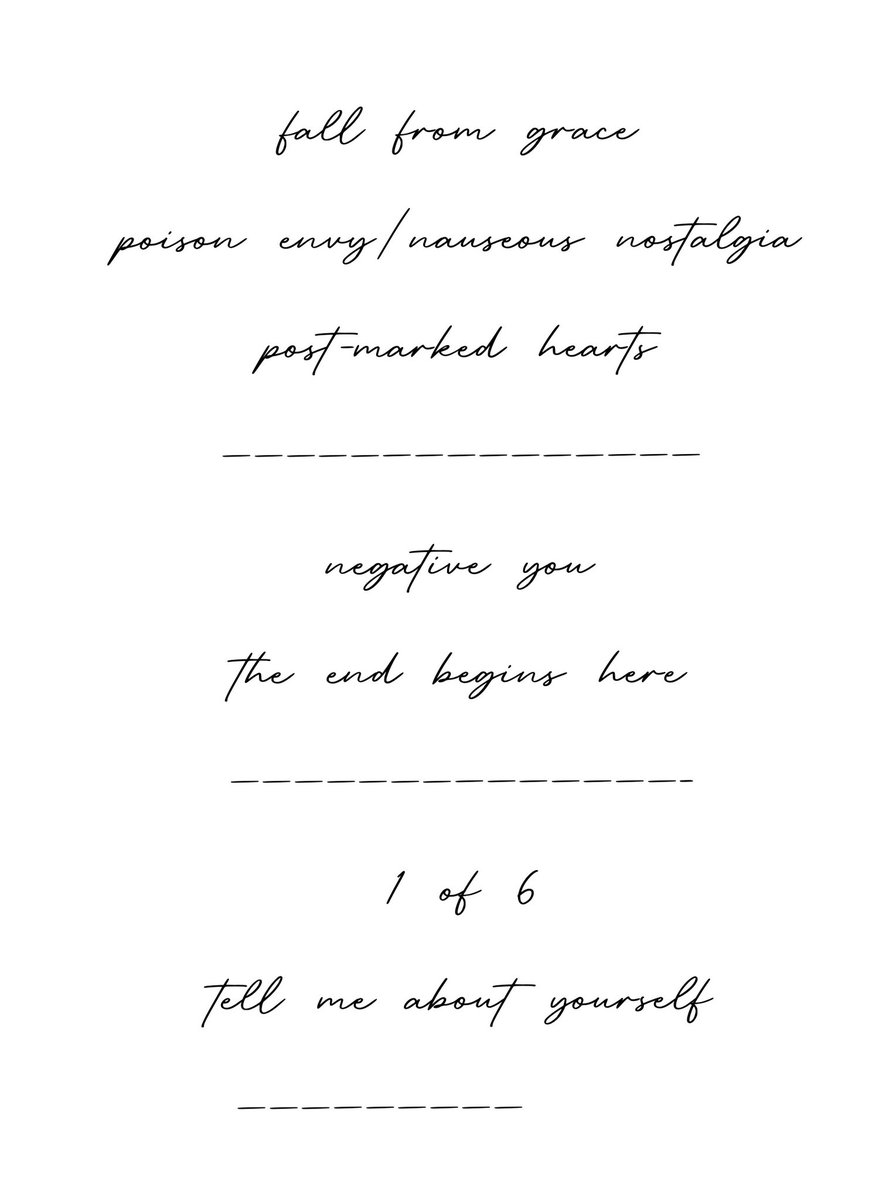 fall from grace
poison envy/nauseous nostalgia
post-marked hearts
_______________
negative you
the end begins here
_______________
1 of 6
tell me about yourself
_________